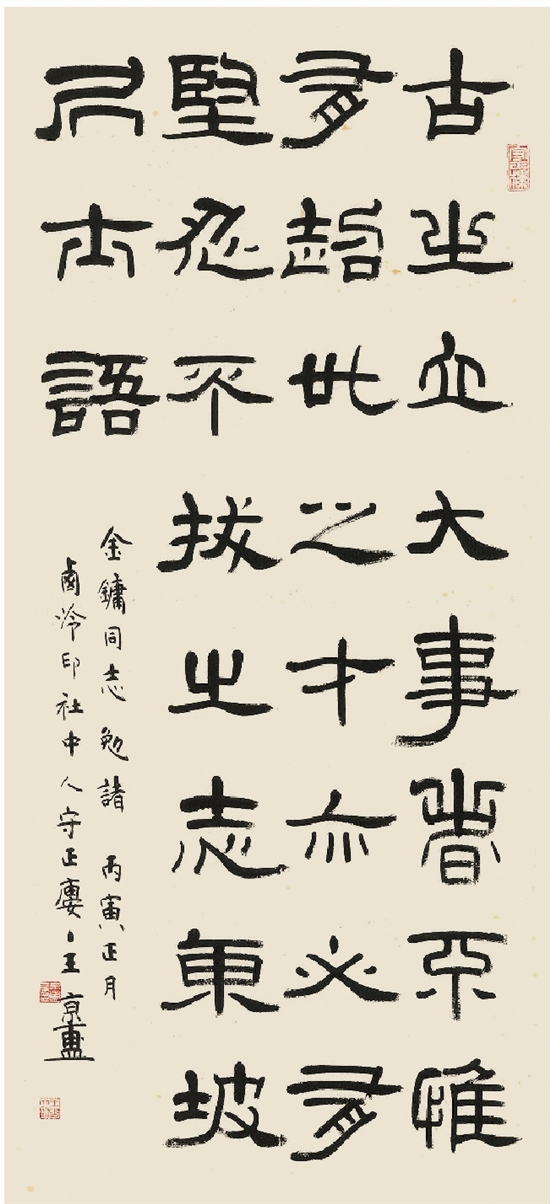 古之立大事者不惟
有超世之才亦必有
堅忍不拔之志東坡
居士語
金鏞同志勉諸 丙寅正月
西泠印社中人守正廔主京盙